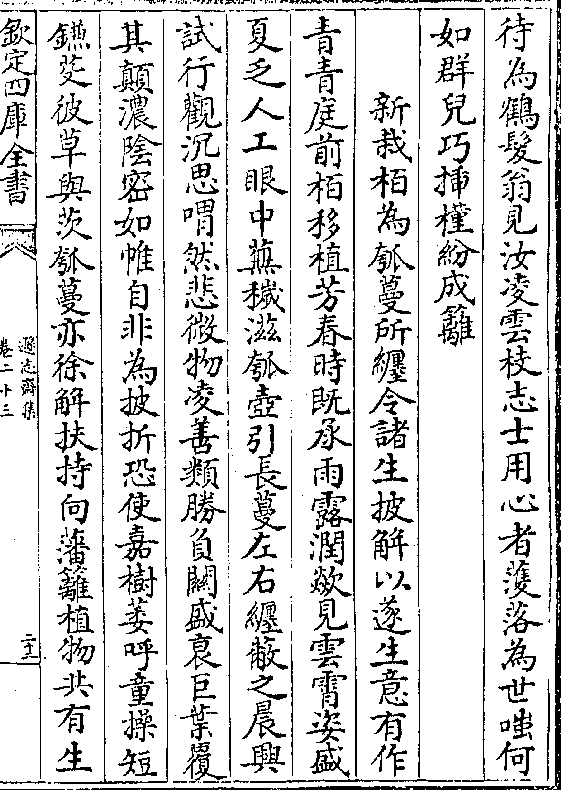 待為鶴髮翁見汝凌雲枝志士用心者蒦落為世嗤何
如群兒巧揷槿紛成籬
新栽栢為瓠蔓所纒令諸生披解以遂生意有作
青青庭前栢移植芳春時既承雨露潤歘見雲霄姿盛
夏乏人工眼中蕪穢滋瓠壺引長蔓左右纒蔽之晨興
試行觀沉思喟然悲微物凌善類勝負關盛衰巨葉覆
其顛濃陰密如帷自非為披折恐使嘉樹萎呼童操短
鐮芟彼草與茨瓠蔓亦徐解扶持向藩籬植物共有生
欽定四庫全書
遜志齋集
卷二十三